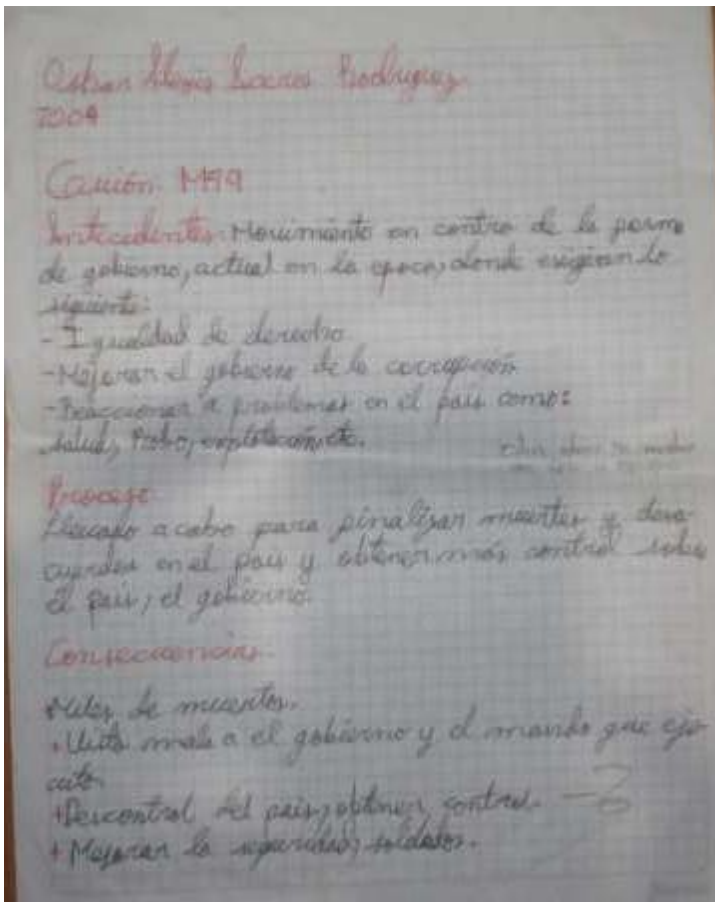 Rodriguez
Antecedentes: Movimiento en contra de la
de gobierno, actual en la epoca, donde exigieron lo
siguiente:
- Igualdad de derecho
- Mejoran el gobierno de la corrupción
- Reaccionar a problemas en el país como:
salud, Robo, explotación, etc.
Proceso
Llevado a cabo para finalizar muertes y desa
cuerdos en el país y obtener más control sobre
el país, el gobierno.
Consecuencias
Miles de muertos.
mala a el gobierno y el mando que eje
cuto.
+Descontrol del país, obtener control.
+ Mejoran la seguridad, soldados.